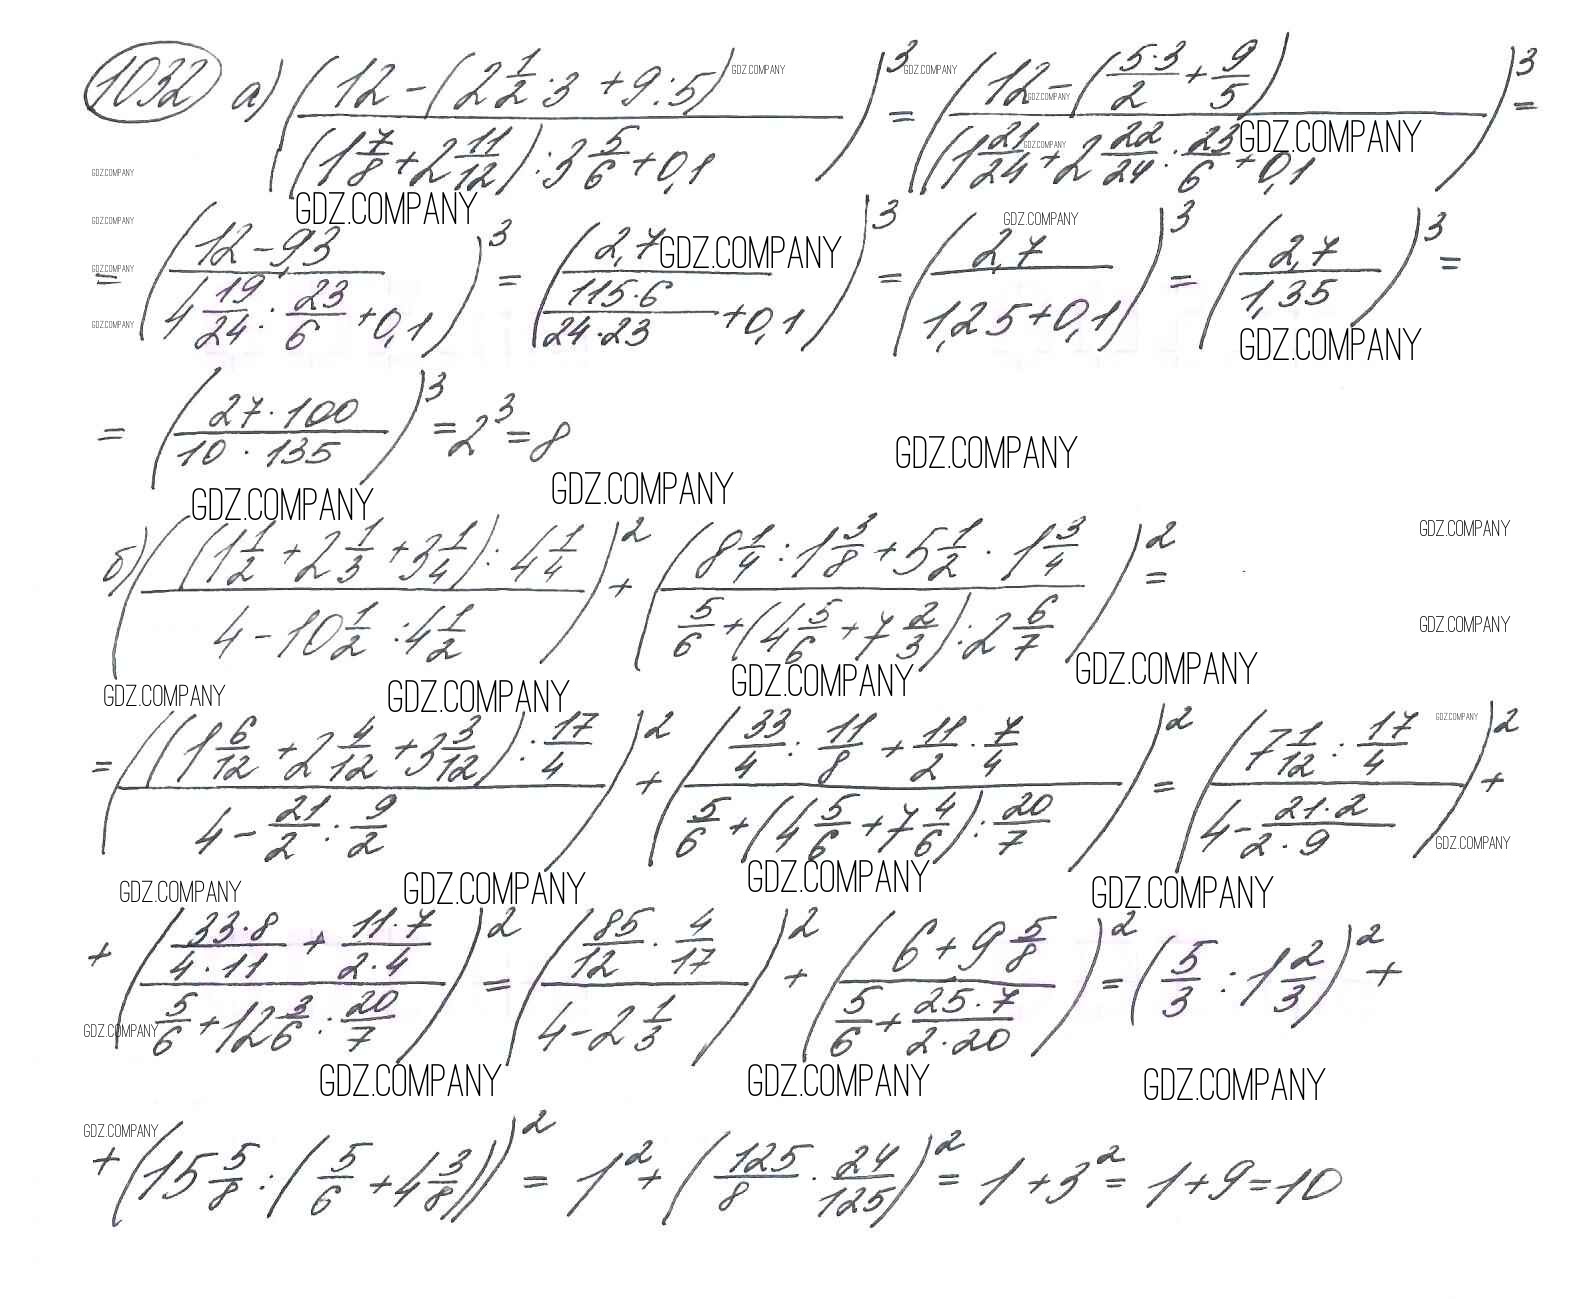 1032 а) ((12 - (2 1/2 · 3 + 9 : 5)) / ((1 7/8 + 2 11/12) : 3 5/6 + 0,1))³ = ((12 - (5·3/2 + 9/5)) / ((1 21/24 + 2 22/24 : 23/6 + 0,1))³ =
= ((12 - 9,3) / (4 19/24 : 23/6 + 0,1))³ = (2,7 / (115·6/24·23 + 0,1))³ = (2,7 / (1,25 + 0,1))³ = (2,7 / 1,35)³ =
= (27·100 / 10·135)³ = 2³ = 8
б) ((1 1/2 + 2 1/3 + 3 1/4) : 4 1/4 / (4 - 10 1/2 : 4 1/2))² + ((8 1/4 : 1 3/8 + 5 1/2 · 1 3/4) / (5/6 + (4 5/6 + 7 2/3) : 2 6/7))² =
= (((1 6/12 + 2 4/12 + 3 3/12) : 17/4) / (4 - 21/2 : 9/2))² + ((33/4 : 11/8 + 11/2 · 7/4) / (5/6 + (4 5/6 + 7 4/6) : 20/7))² = ((7 1/12 : 17/4) / (4 - 21·2/2·9))² +
+ ((33·8/4·11 + 11·7/2·4) / (5/6 + 12 3/6 : 20/7))² = ((85/12 · 4/17) / (4 - 2 1/3))² + ((6 + 9 5/8) / (5/6 + 25·7/2·20))² = (5/3 : 1 2/3)² +
+ (15 5/8 : (5/6 + 4 3/8))² = 1² + (125/8 · 24/125)² = 1 + 3² = 1 + 9 = 10
GDZ.COMPANY